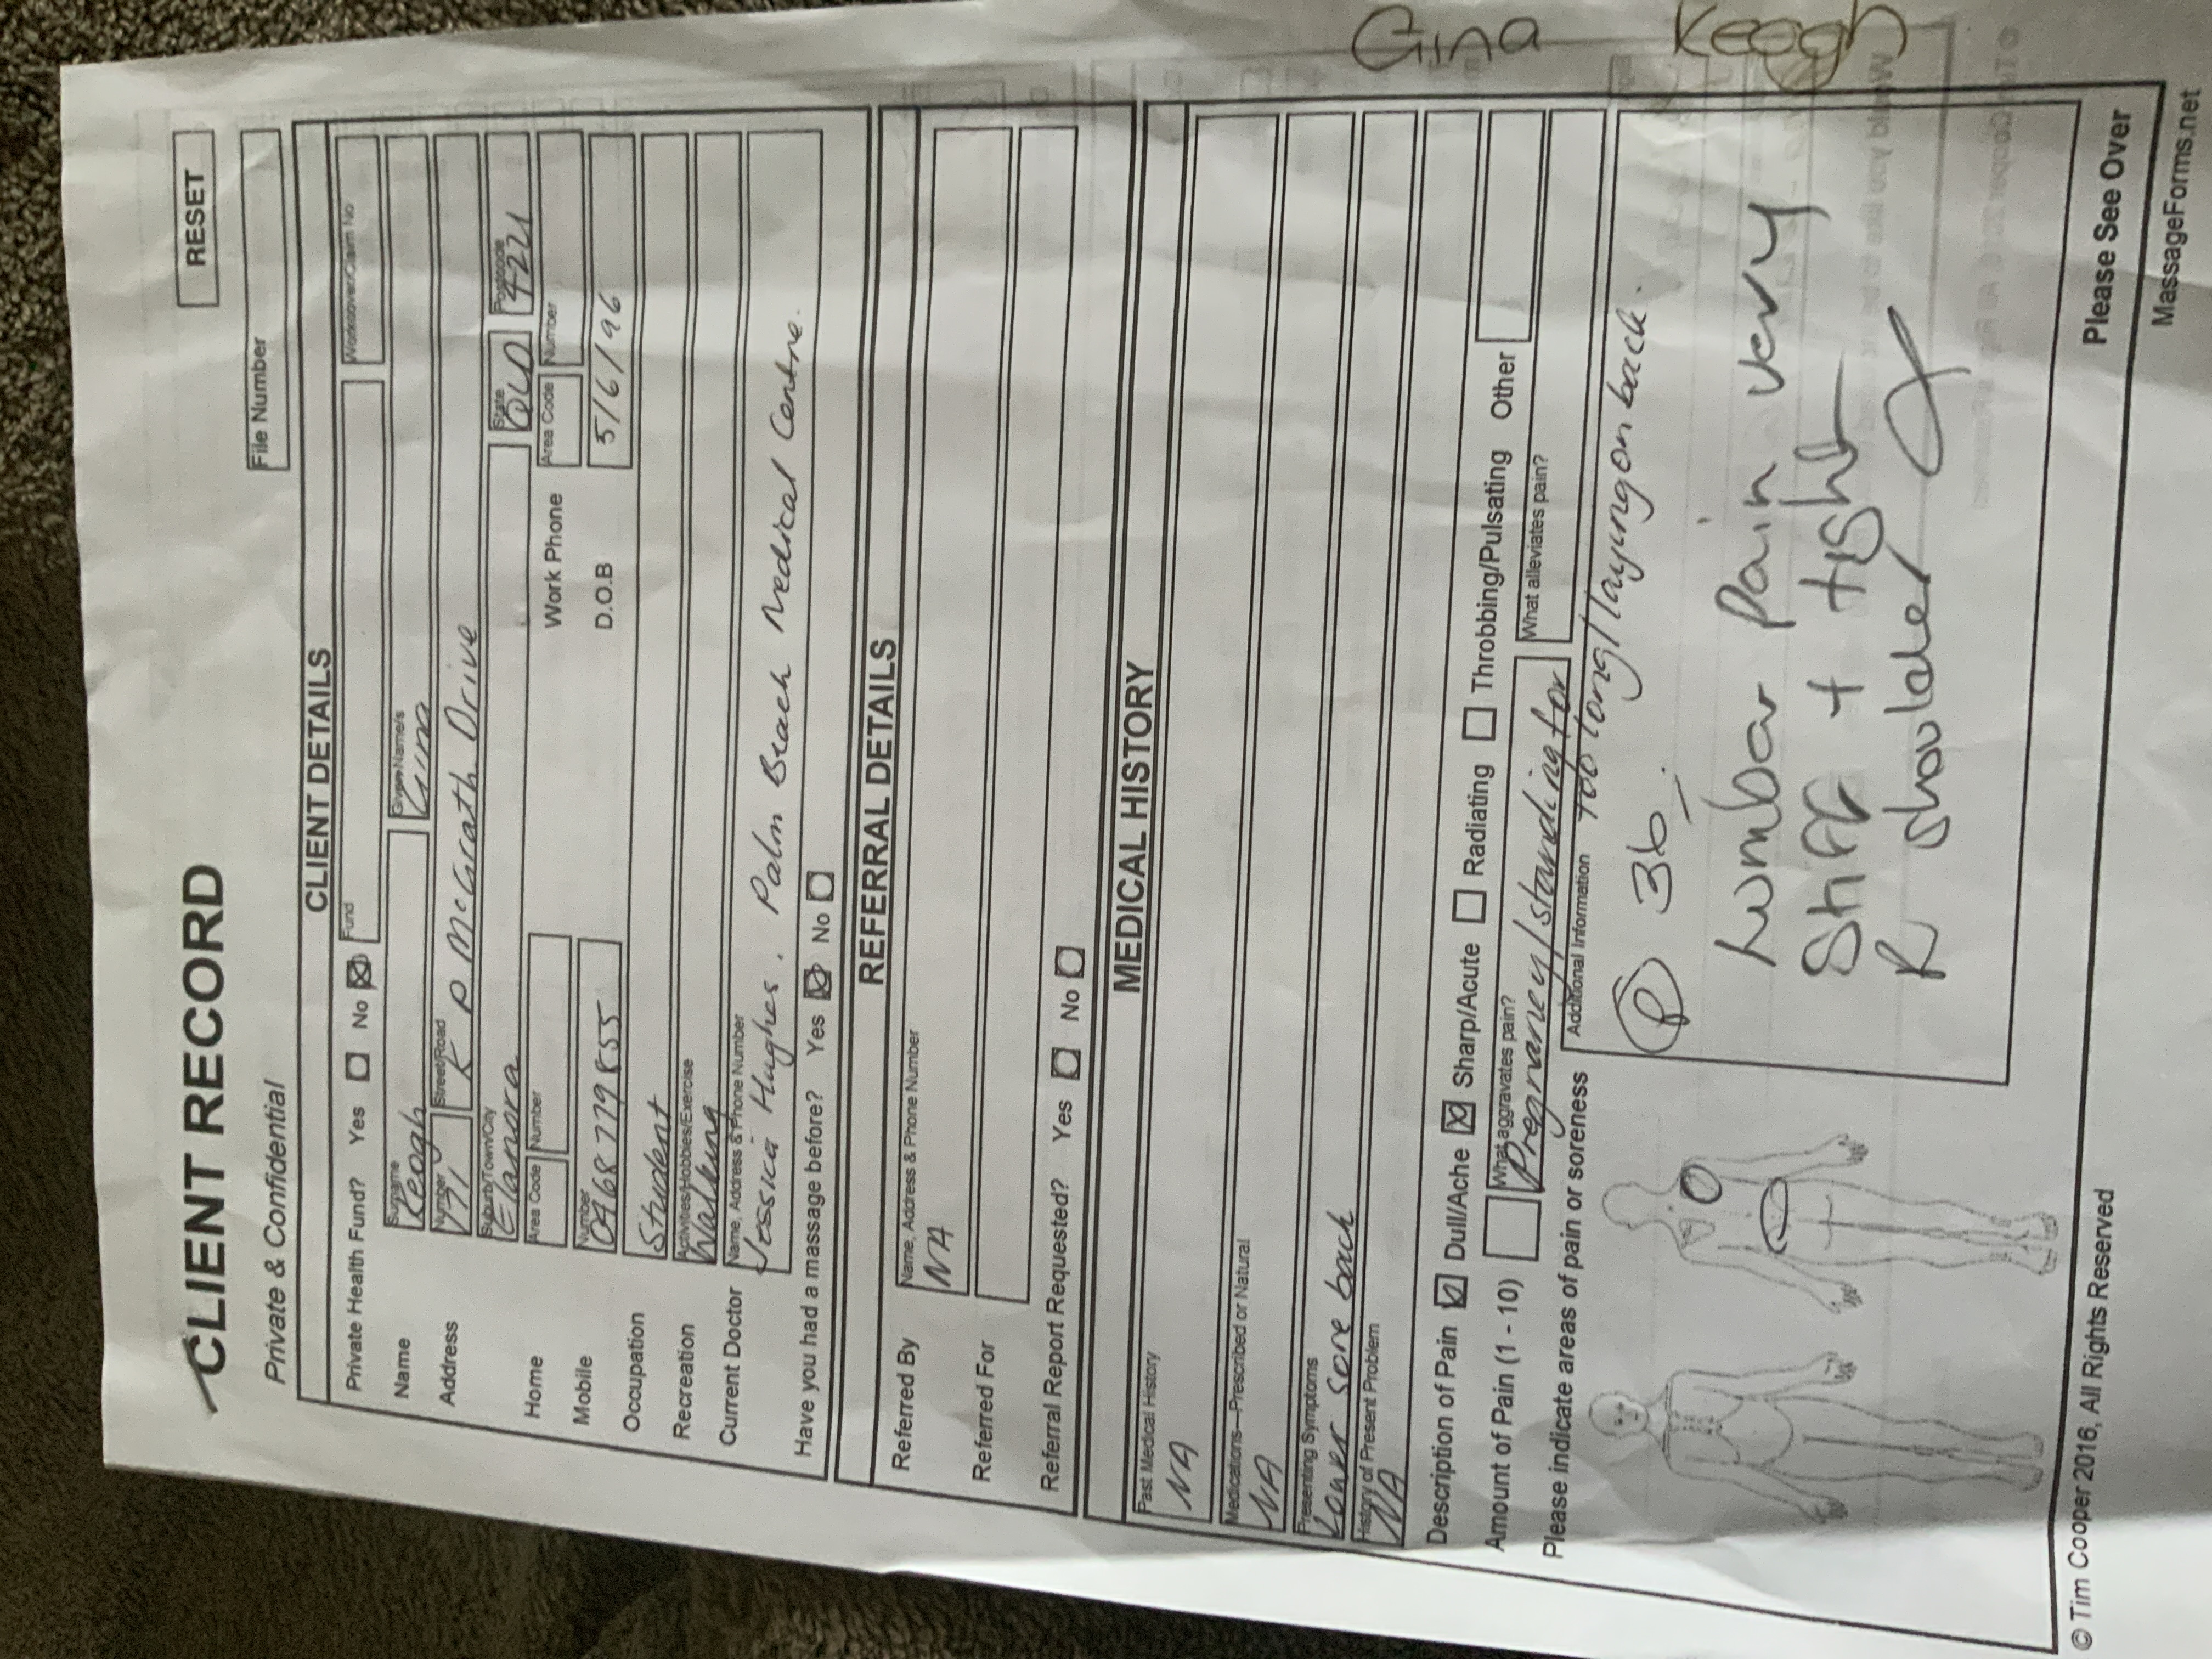 RESET
CLIENT RECORD
Private & Confidential
File Number
CLIENT DETAILS
Private Health Fund? Yes No Fund Workcover/Claim No
Name Surname Keogh Given Name/s Gina
Address Number Street/Road K P McGrath Drive
Suburb/Town/City Elanora State QLD Postcode 4221
Home Area Code Number Work Phone Area Code Number
Mobile Number 0468779855 D.O.B 5/6/96
Occupation Student
Recreation Activities/Hobbies/Exercise Walking
Current Doctor Name, Address & Phone Number
Jessica Hughes. Palm Beach Medical Centre.
Have you had a massage before? Yes No
REFERRAL DETAILS
Referred By Name, Address & Phone Number
NA
Referred For
Referral Report Requested? Yes No
MEDICAL HISTORY
Past Medical History
NA
Medications—Prescribed or Natural
NA
Presenting Symptoms
Lower sore back
History of Present Problem
NA
Description of Pain Dull/Ache Sharp/Acute Radiating Throbbing/Pulsating Other
Amount of Pain (1 - 10) What aggravates pain? What alleviates pain?
Pregnancy/standing for
too long/laying on back.
Please indicate areas of pain or soreness Additional Information
P 36
Lumbar Pain very
Stiff + tight
R shoulder
Please See Over
© Tim Cooper 2016, All Rights Reserved MassageForms.net
Gina Keogh